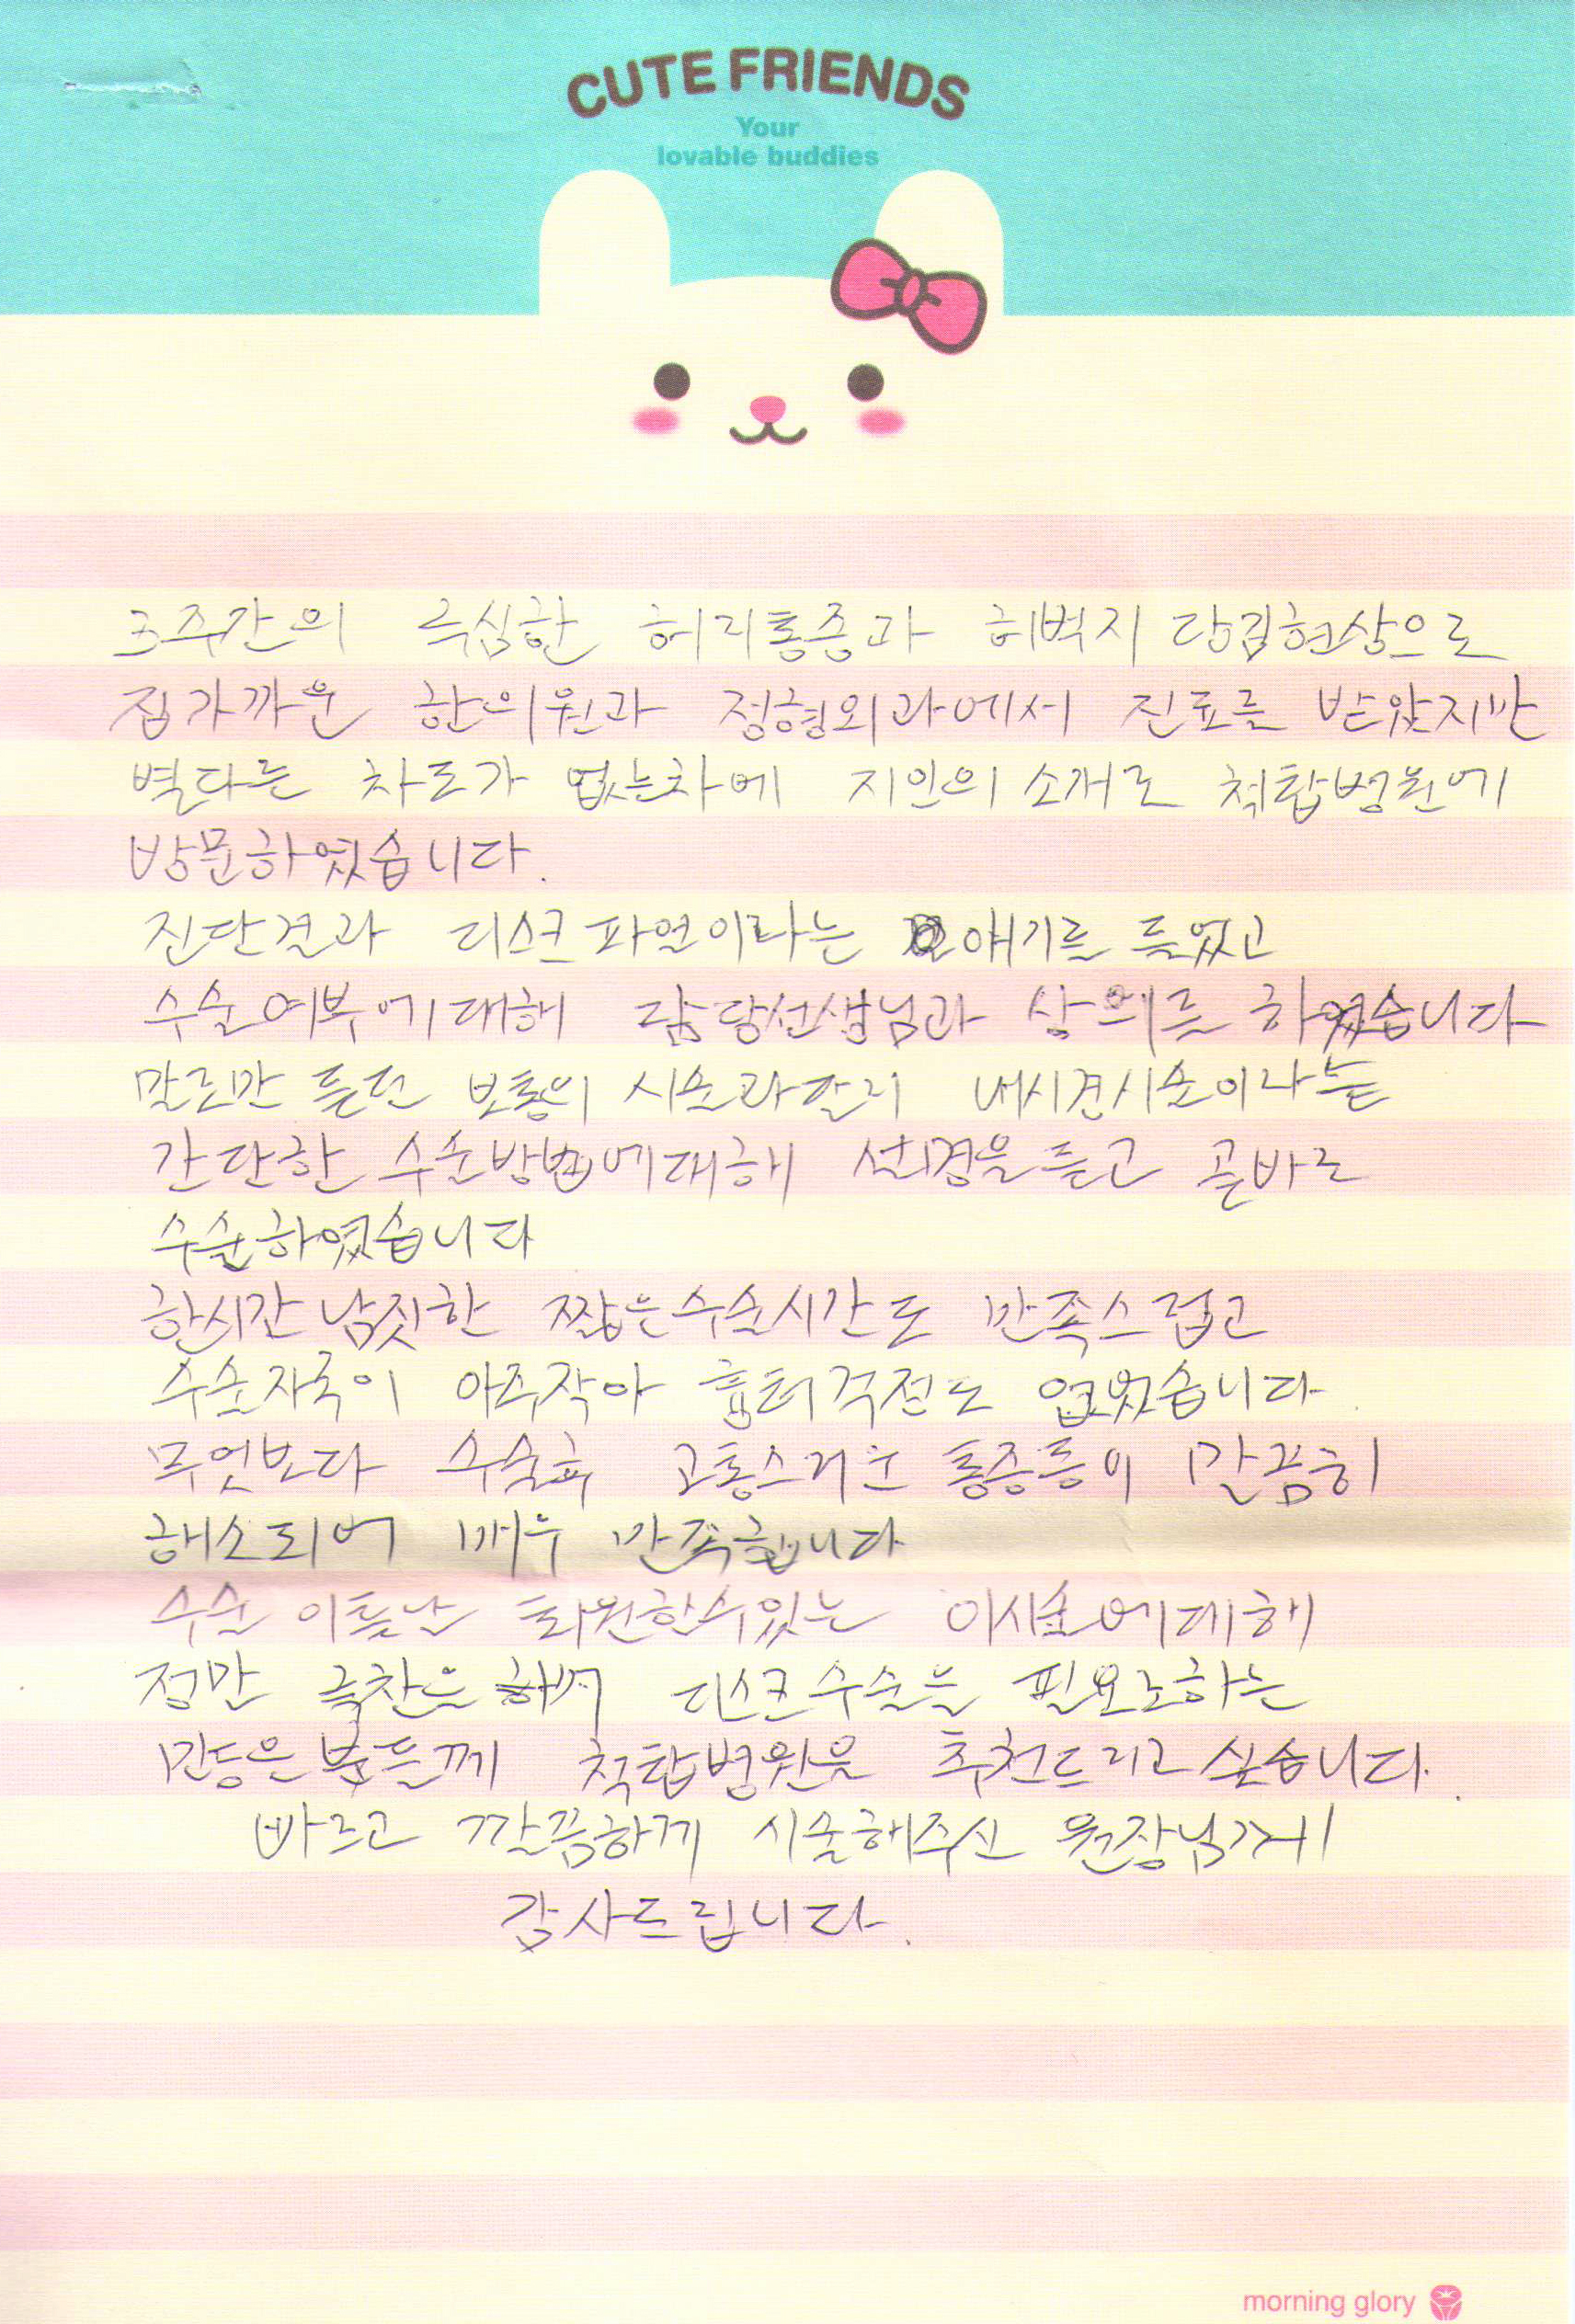 CUTE FRIENDS
Your
lovable buddies
3주간의 극심한 허리통증과 허벅지 당김현상으로
집가까운 한의원과 정형외과에서 진료를 받았지만
별다른 차도가 없는차에 지인의 소개로 척탑병원에
방문하였습니다.
진단결과 디스크 파열이라는 얘기를 들었고
수술여부에대해 담당선생님과 상의를 하였습니다
말로만 듣던 보통의 시술과달리 내시경시술이라는
간단한 수술방법에대해 설명을듣고 곧바로
수술하였습니다
한시간 남짓한 짧은수술시간도 만족스럽고
수술자국이 아주작아 흉터걱정도 없었습니다.
무엇보다 수술후 고통스러운 통증등이 말끔히
해소되어 매우 만족합니다
수술 이튿날 퇴원할수있는 이시술에데해
정말 극찬을 하며 디스크수술을 필요로하는
많은분들께 척탑병원을 추천드리고싶습니다.
바르고 깔끔하게 시술해주신 원장님게
감사드립니다.
morning glory